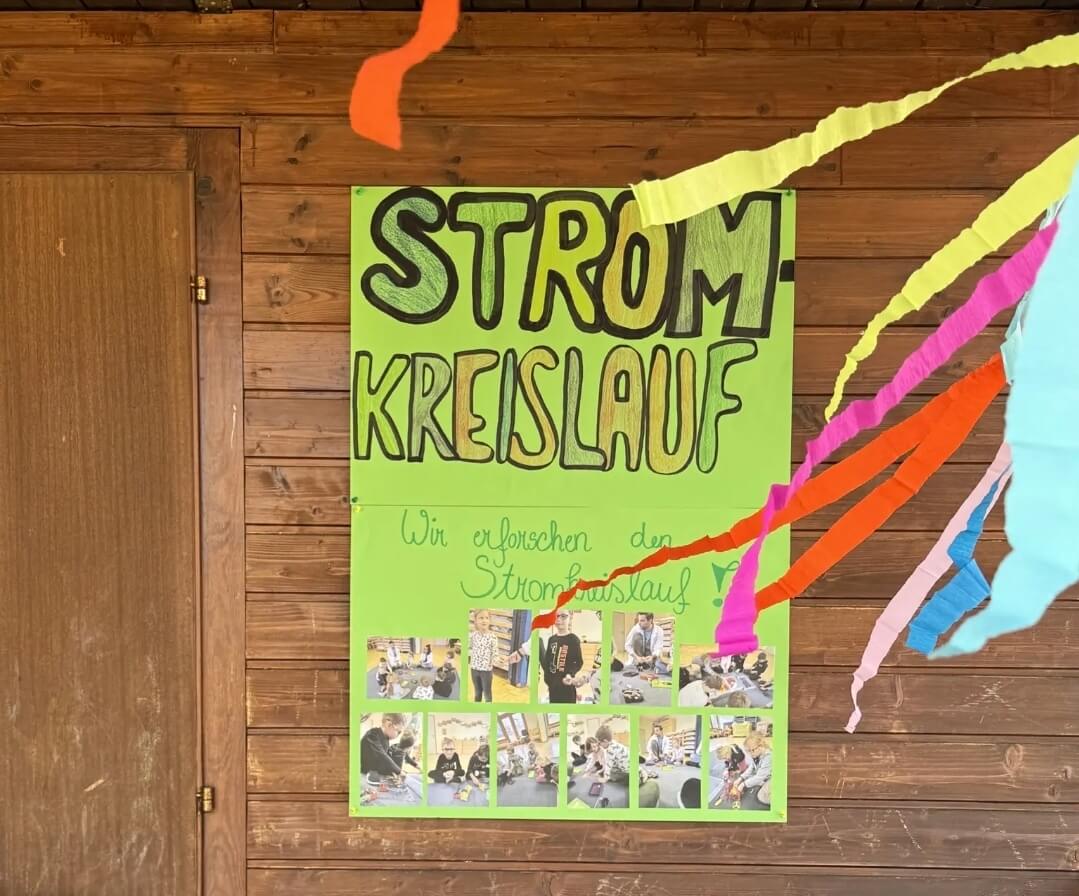 STROM-
KREISLAUF
Wir erforschen den
Stromkreislauf!